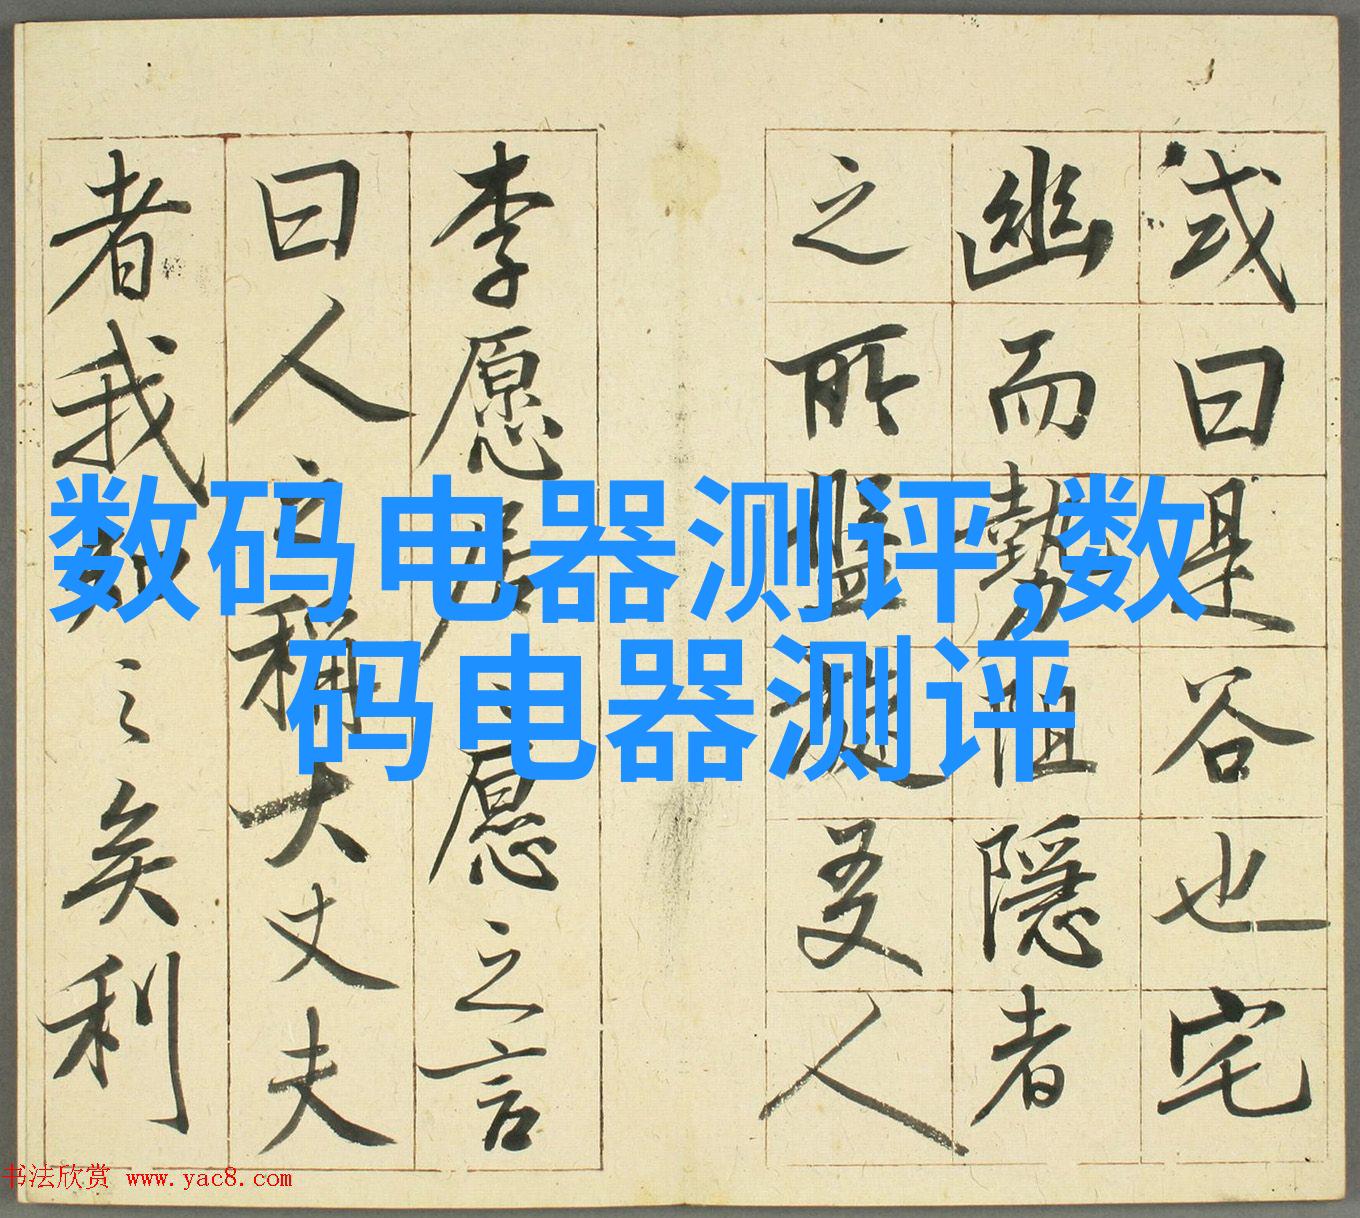 或曰是谷也宅
幽而勢阻隱者
之所盤旋友人
李愿居之愿之言
曰人之稱大丈夫
者我知之矣利
数码电器测评,数
码电器测评
书法欣赏 www.yac8.com